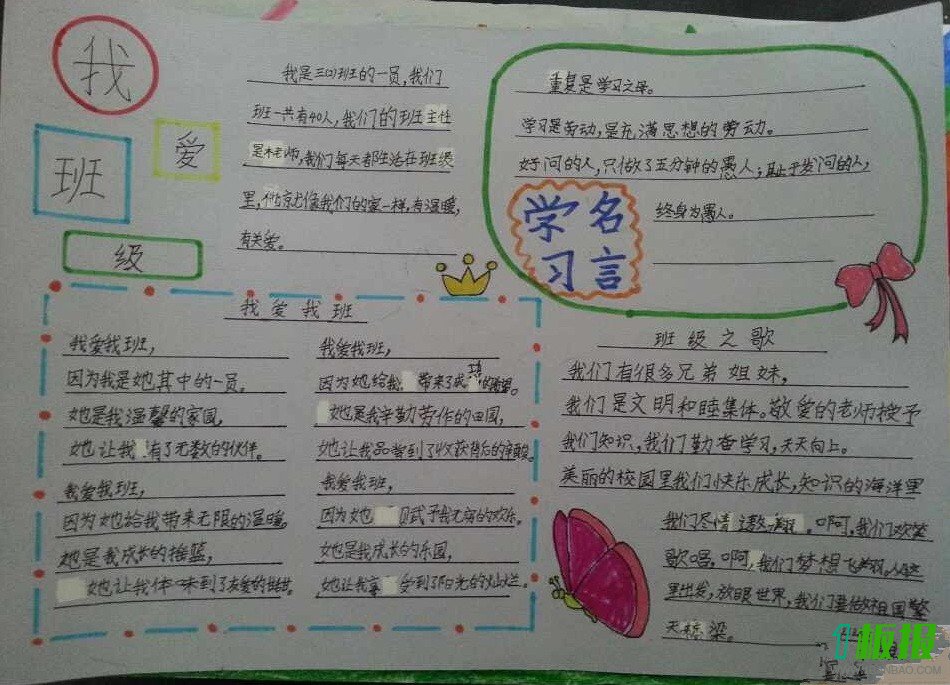 我
爱
班
级
我是三(2)班的一员,我们
班一共有40人,我们的班主任
是林老师,我们每天都生活在班级
里,他就像我们的家一样,有温暖,
有关爱。
重复是学习之母。
学习是劳动,是充满思想的劳动。
好问的人,只做了五分钟的愚人;耻于发问的人,
终身为愚人。
学习
名言
我爱我班
我爱我班,
因为我是她其中的一员。
她是我温馨的家园,
她让我有了无数的伙伴。
我爱我班,
因为她给我带来无限的温暖。
她是我成长的摇篮,
她让我体味到了友爱的
我爱我班,
因为她给我带来了成
她也是我辛勤劳作的田园,
她让我品尝到了收获背后的
我爱我班,
因为她赋予我无穷的欢乐。
她是我成长的乐园,
她让我享受到了阳光的灿烂。
班级之歌
我们有很多兄弟姐妹,
我们是文明和睦集体。敬爱的老师授予
我们知识,我们勤奋学习,天天向上。
美丽的校园里我们快乐成长,知识的海洋里
我们尽情遨游。啊,我们欢繁
歌唱。啊,我们梦想飞翔。从这
里出发,放眼世界,我们要做祖国擎
天栋梁。
板报